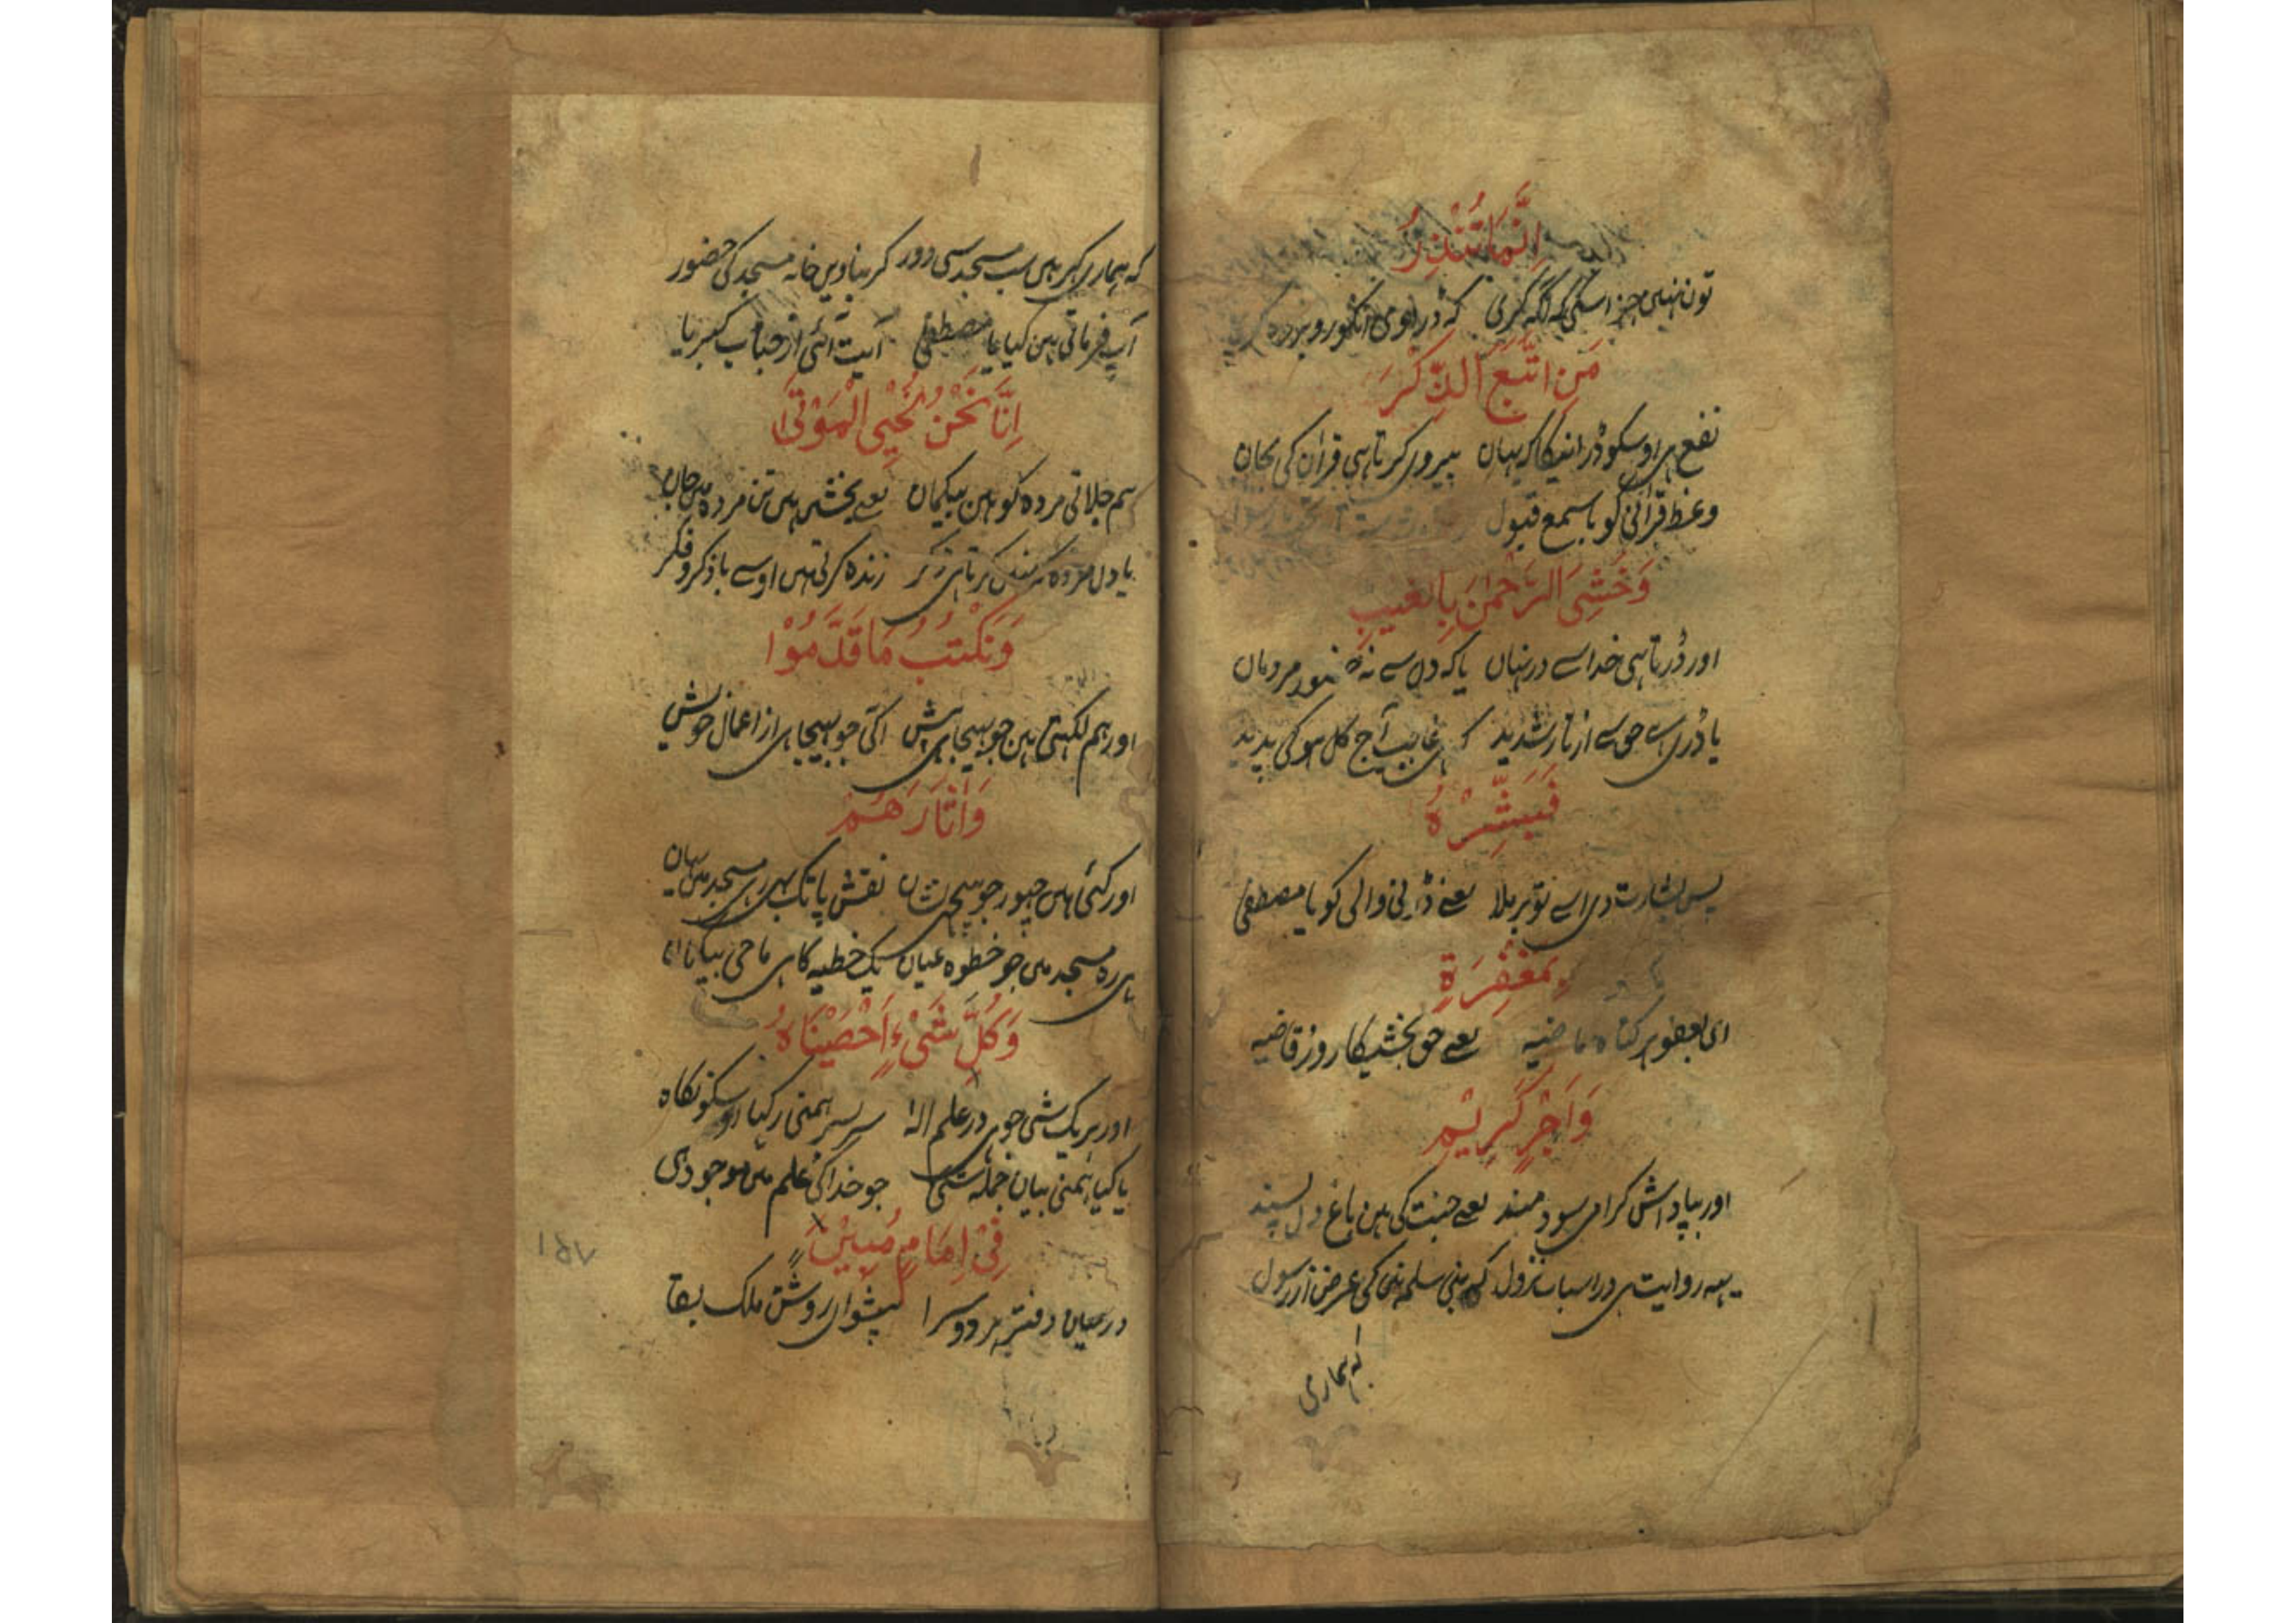 اِنَّمَا تُنْذِرُ
تون نہیں جز اسکی کہ آگہ کری کہ ڈراوی
مَنِ اتَّبَعَ الذِّكْرَ
نفع ہی اوسکو ڈرانیکا کہ یہان پیروی کرتا ہی قران کی بجان
وعظ قرآنی کو باسمع قبول
وَخَشِىَ الرَّحْمٰنَ بِالْغَيْبِ
اور ڈرتا ہی خدا سے در نہان یا کہ دل سے نہ مردمان
یا ڈری اسے حق سے از نار شدید کہ ہی غایب آج کل ہوکی پدید
فَبَشِّرْهُ
پس بشارت دی اسے تو برملا یعنے ڈرنی والی کو یا مصطفی
بِمَغْفِرَةٍ
ای بعفو ہر گناہ ماضیہ یعنے حق بخشیگا روز قاضیہ
وَاَجْرٍ كَرِيْمٍ
اور بپاداش گرامی سودمند یعنے جنت کی ہین باغ دل پسند
یہہ روایت ہی در اسباب نزول کہ بنی سلمہ نی کی عرض از رسول
کہ ہماری
کہ ہماری گہر ہین سب مسجد سی دور کر بناوین خانہ مسجد کی حضور
آپ فرماتی ہین کیا یا مصطفی آیت آئی از جناب کبریا
اِنَّا نَحْنُ نُحْيِ الْمَوْتٰى
ہم جلاتی مردہ کو ہین بیگمان یعنے بخشی ہین تن مردہ مین جان
یا دل مردہ کہ زندہ کرتی ہین اوسے با ذکر و فکر
وَنَكْتُبُ مَا قَدَّمُوْا
اور ہم لکہتی ہین جو بہیجا ہی پیش اگی جو بہیجا ہی از اعمال خویش
وَاٰثَارَهُمْ
اور گئی ہین چہور جو پیچہی نشان نقش پا تک بہی رہ مسجد مین یہان
ہی رہ مسجد مین جو خطوہ عیان یک خطیہ کا ہی ماحی بیگمان
وَكُلَّ شَىْءٍ اَحْصَيْنَاهُ
اور ہر یک شی جو ہی در علم الہ سر بسر ہمنی رکہا اوسکو نگاہ
یا کیا ہمنی بیان جملہ شی جو خدا کی علم مین موجود ہی
فِىْ اِمَامٍ مُبِيْنٍ
درمیان دفتر ہر دو سرا پیشوای روشن ملک بقا
۱۵۷